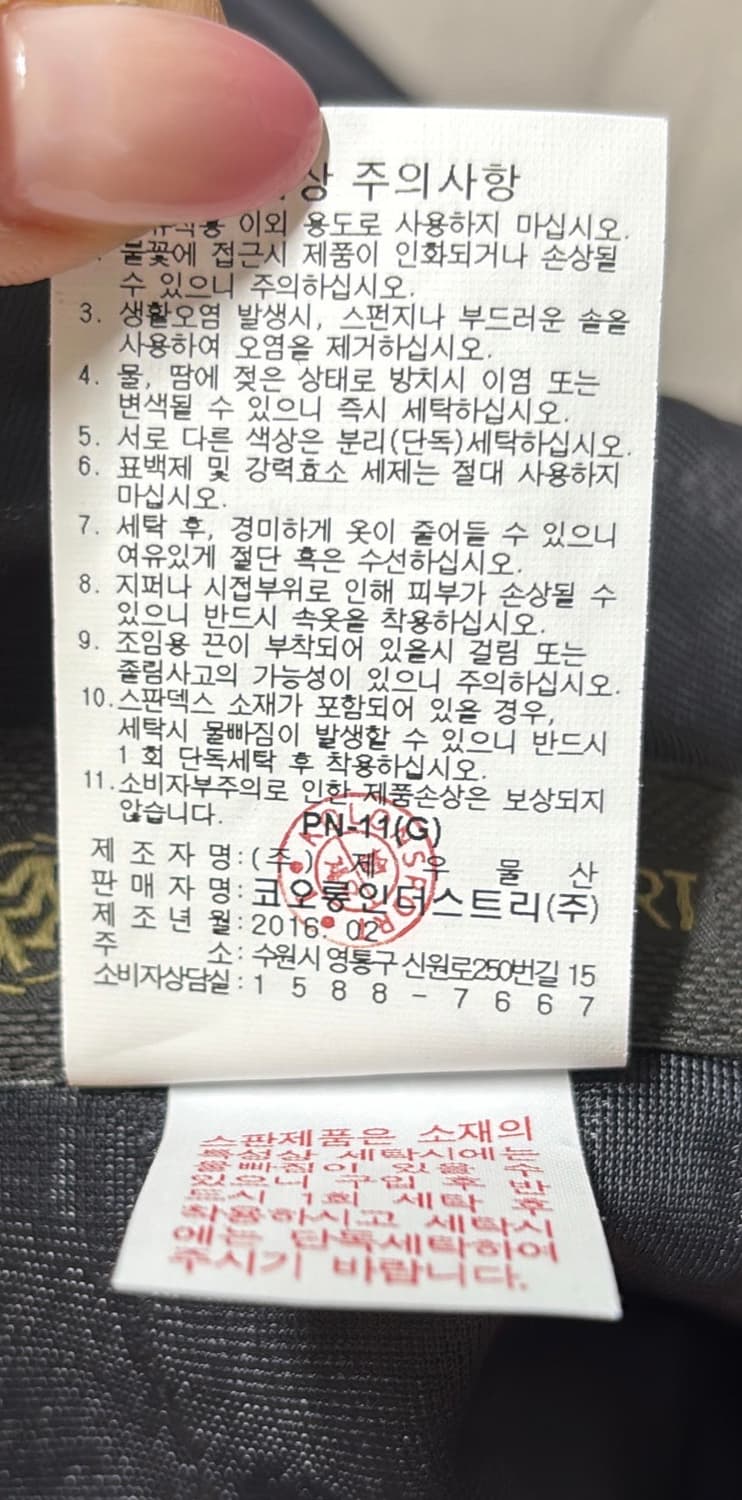 상 주의사항
이외 용도로 사용하지 마십시오.
불꽃에 접근시 제품이 인화되거나 손상될
수 있으니 주의하십시오.
3. 생활오염 발생시, 스펀지나 부드러운 솔을
사용하여 오염을 제거하십시오.
4. 물, 땀에 젖은 상태로 방치시 이염 또는
변색될 수 있으니 즉시 세탁하십시오.
5. 서로 다른 색상은 분리(단독)세탁하십시오.
6. 표백제 및 강력효소 세제는 절대 사용하지
마십시오.
7. 세탁 후, 경미하게 옷이 줄어들 수 있으니
여유있게 절단 혹은 수선하십시오.
8. 지퍼나 시접부위로 인해 피부가 손상될 수
있으니 반드시 속옷을 착용하십시오.
9. 조임용 끈이 부착되어 있을시 걸림 또는
졸림사고의 가능성이 있으니 주의하십시오.
10. 스판덱스 소재가 포함되어 있을 경우,
세탁시 물빠짐이 발생할 수 있으니 반드시
1 회 단독세탁 후 착용하십시오.
11. 소비자부주의로 인한 제품손상은 보상되지
않습니다.
PN-11(G)
KOLON SPORT
제 조 자 명 : (주) 제 우 물 산
판 매 자 명 : 코오롱인더스트리(주)
제 조 년 월 : 2016. 02
주 소 : 수원시 영통구 신원로250번길 15
소비자상담실 : 1 5 8 8 - 7 6 6 7
RT
스판제품은 소재의
특성상 세탁시에는
물빠짐이 있을 수
있으니 구입 후 반
드시 1회 세탁 후
착용하시고 세탁시
에는 단독세탁하여
주시기 바랍니다.